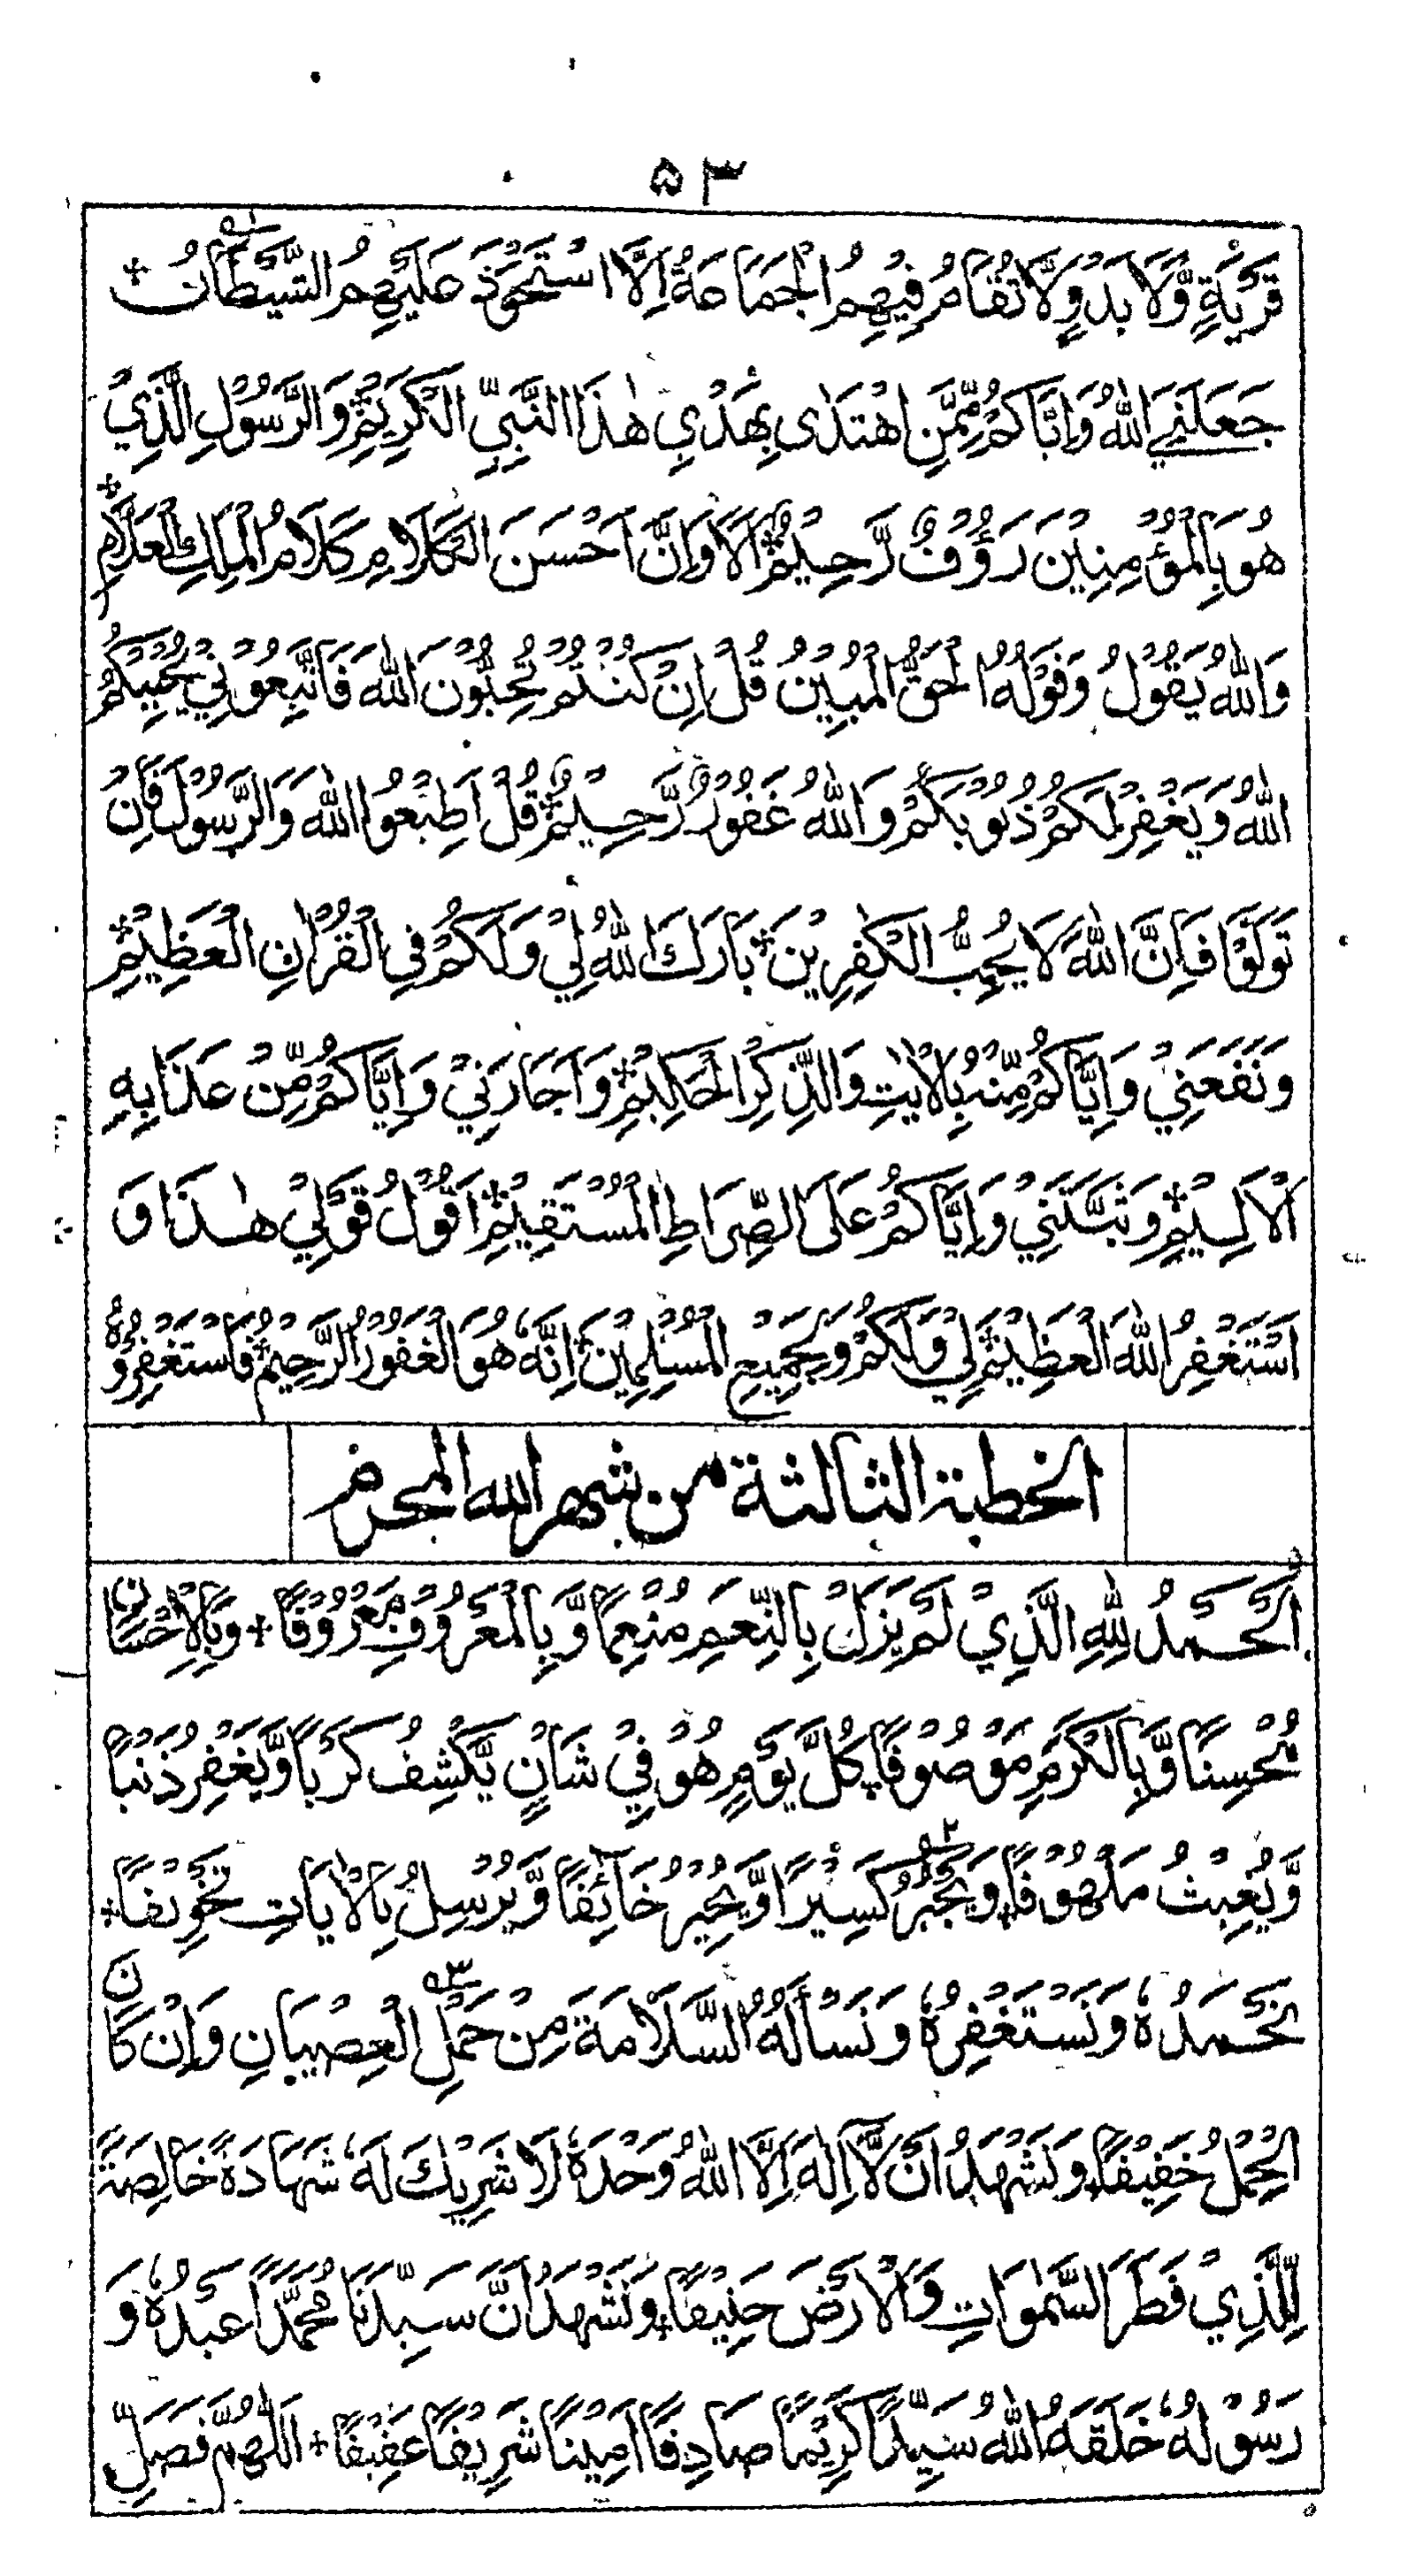 ۵۳
قَرْيَةٍ وَّلَا بَدْوٍ وَّلَا تُقَامُ فِيْهِمُ الْجَمَاعَةُ اِلَّا اسْتَحْوَذَ عَلَيْهِمُ الشَّيْطَانُ ٥١
جَعَلَنِيَ اللّٰهُ وَاِيَّاكُمْ مِّمَّنِ اهْتَدٰى بِهَدْيِ هٰذَا النَّبِيِّ الْكَرِيْمِ وَالرَّسُوْلِ الَّذِيْ
هُوَ بِالْمُؤْمِنِيْنَ رَؤُوْفٌ رَّحِيْمٌ اَلَا وَاِنَّ اَحْسَنَ الْكَلَامِ كَلَامُ الْمَلِكِ الْعَلَّامِ
وَاللّٰهُ يَقُوْلُ وَقَوْلُهُ الْحَقُّ الْمُبِيْنُ قُلْ اِنْ كُنْتُمْ تُحِبُّوْنَ اللّٰهَ فَاتَّبِعُوْنِيْ يُحْبِبْكُمُ
اللّٰهُ وَيَغْفِرْ لَكُمْ ذُنُوْبَكُمْ وَاللّٰهُ غَفُوْرٌ رَّحِيْمٌ قُلْ اَطِيْعُوا اللّٰهَ وَالرَّسُوْلَ فَاِنْ
تَوَلَّوْا فَاِنَّ اللّٰهَ لَا يُحِبُّ الْكٰفِرِيْنَ بَارَكَ اللّٰهُ لِيْ وَلَكُمْ فِي الْقُرْاٰنِ الْعَظِيْمِ
وَنَفَعَنِيْ وَاِيَّاكُمْ مِّنْهُ بِالْاٰيٰتِ وَالذِّكْرِ الْحَكِيْمِ وَاَجَارَنِيْ وَاِيَّاكُمْ مِّنْ عَذَابِهِ
الْاَلِيْمِ وَثَبَّتَنِيْ وَاِيَّاكُمْ عَلَى الصِّرَاطِ الْمُسْتَقِيْمِ اَقُوْلُ قَوْلِيْ هٰذَا وَ
اَسْتَغْفِرُ اللّٰهَ الْعَظِيْمَ لِيْ وَلَكُمْ وَلِجَمِيْعِ الْمُسْلِمِيْنَ اِنَّهٗ هُوَ الْغَفُوْرُ الرَّحِيْمُ فَاسْتَغْفِرُوْهُ
الخطبة الثالثة من شهر الله المحرم
اَلْحَمْدُ لِلّٰهِ الَّذِيْ لَمْ يَزَلْ بِالنِّعَمِ مُنْعِمًا وَّبِالْمَعْرُوْفِ مَعْرُوْفًا وَبِالْاِحْسَانِ
مُحْسِنًا وَّبِالْكَرَمِ مَوْصُوْفًا كُلَّ يَوْمٍ هُوَ فِيْ شَاْنٍ يَّكْشِفُ كَرْبًا وَّيَغْفِرُ ذَنْبًا
وَّيُغِيْثُ مَلْهُوْفًا وَيَجْبُرُ ٥٢ كَسِيْرًا وَّيُجِيْرُ خَائِفًا وَّيُرْسِلُ بِالْاٰيَاتِ تَخْوِيْفًا
نَحْمَدُهٗ وَنَسْتَغْفِرُهٗ وَنَسْاَلُهُ السَّلَامَةَ مِنْ حَمْلِ ٥٣ الْعِصْيَانِ وَاِنْ كَانَ
الْحِمْلُ خَفِيْفًا وَنَشْهَدُ اَنْ لَّا اِلٰهَ اِلَّا اللّٰهُ وَحْدَهٗ لَا شَرِيْكَ لَهٗ شَهَادَةً خَالِصَةً
لِلَّذِيْ فَطَرَ السَّمٰوَاتِ وَالْاَرْضَ حَنِيْفًا وَنَشْهَدُ اَنَّ سَيِّدَنَا مُحَمَّدًا عَبْدُهٗ وَ
رَسُوْلُهٗ خَلَقَهُ اللّٰهُ سَيِّدًا كَرِيْمًا صَادِقًا اَمِيْنًا شَرِيْفًا عَفِيْفًا اَللّٰهُمَّ فَصَلِّ